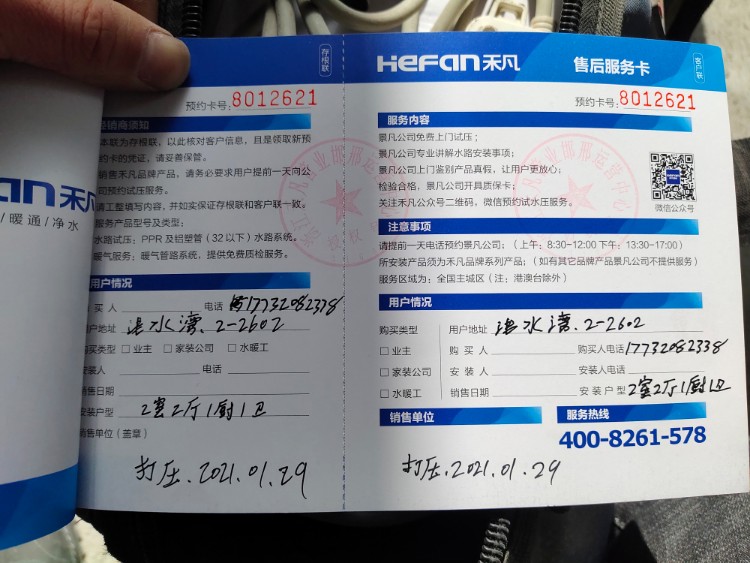 an禾凡
/暖通/净水
存根联
预约卡号:8012621
经销商须知
本联为存根联，以此核对客户信息，且是领取新预
约卡的凭证，请妥善保管。
销售禾凡品牌产品，请务必要求用户提前一天向公
司预约试压服务。
请工整填写内容，并如实保证存根联和客户联一致。
服务产品型号及类型：
水路试压：PPR 及铝塑管（32 以下）水路系统。
暖气服务：暖气管路系统，提供免费质检服务。
用户情况
买人 电话 17732082338
用户地址 温水湾、2-2602
购买类型 □ 业主 □ 家装公司 □ 水暖工
安装人 电话
销售日期
安装户型 2室2厅1厨1卫
销售单位（盖章）
打压.2021.01.29
HeFan禾凡 售后服务卡
客户联
预约卡号:8012621
服务内容
景凡公司免费上门试压；
景凡公司专业讲解水路安装事项；
景凡公司上门鉴别产品真假，让用户更放心；
检验合格，景凡公司开具质保卡；
关注禾凡公众号二维码，微信预约试水压服务。
微信公众号
注意事项
请提前一天电话预约景凡公司；（上午：8:30-12:00 下午：13:30-17:00）
所安装产品须为禾凡品牌系列产品；（如有其它品牌产品景凡公司不提供服务）
服务区域为：全国主城区（注：港澳台除外）
用户情况
购买类型 用户地址 温水湾、2-2602
□ 业主 购 买 人 购买人电话 17732082338
□ 家装公司 安 装 人 安装人电话
□ 水暖工 销售日期 安装户型 2室2厅1厨1卫
销售单位 服务热线
400-8261-578
打压.2021.01.29